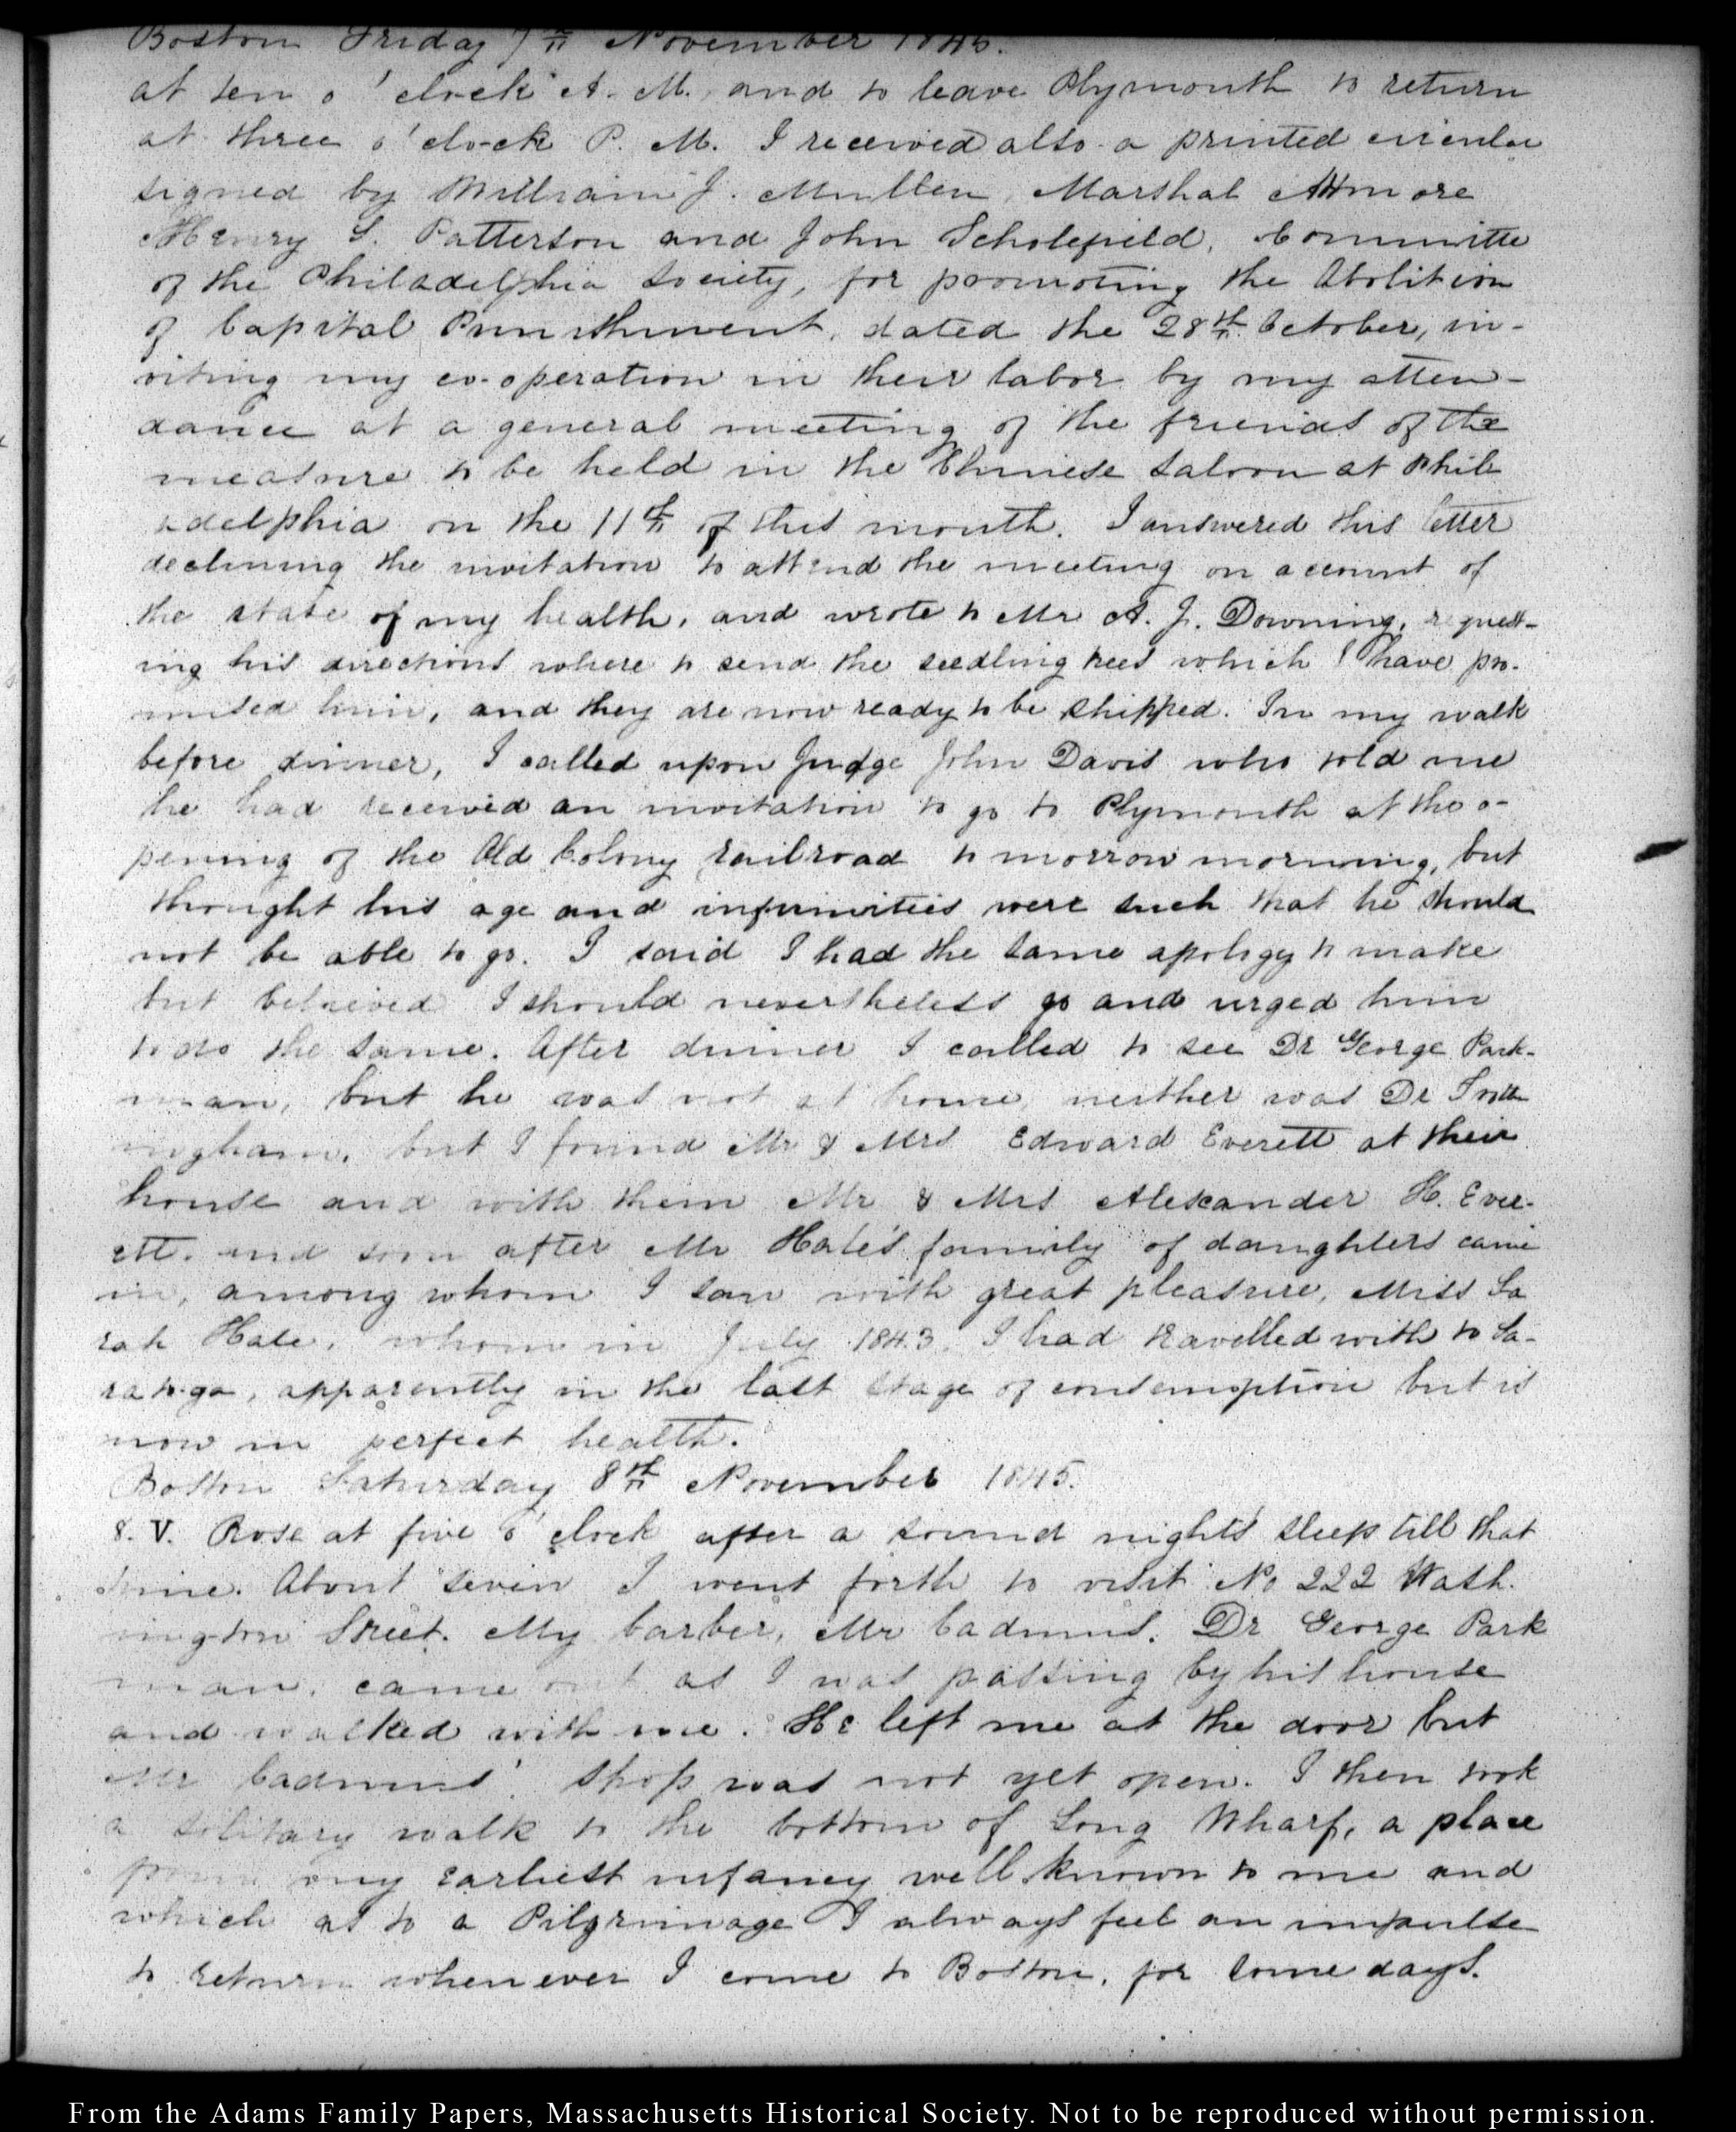 Boston Friday 7th November 1845.
at ten o'clock A. M. and to leave Plymouth to return
at three o'clock P. M. I received also a printed circular
signed by William J. Mullen, Marshal Attmore
Henry S. Patterson and John Scholefield, Committe
of the Philadelphia Society, for promoting the Abolition
of Capital Punishment, dated the 28th October, in-
viting my co-operation in their labor by my atten-
dance at a general meeting of the friends of the
measure to be held in the Chinese Saloon at Phil
adelphia on the 11th of this month. I answered this letter
declining the invitation to attend the meeting on account of
the state of my health, and wrote to Mr A. J. Downing, request-
ing his directions where to send the seedling trees which I have pro-
mised him, and they are now ready to be shipped. In my walk
before dinner, I called upon Judge John Davis who told me
he had received an invitation to go to Plymouth at the o-
pening of the Old Colony railroad to morrow morning, but
thought his age and infirmities were such that he should
not be able to go. I said I had the same apology to make
but believed I should nevertheless go and urged him
to do the same. After dinner I called to see Dr George Park-
man, but he was not at home, neither was Dr Froth
ingham, but I found Mr & Mrs Edward Everett at their
house and with them Mr & Mrs Alexander H. Ever-
ett. and soon after Mr Hale's family of daughters came
in, among whom I saw with great pleasure, Miss Sa
rah Hale, whom in July 1843. I had travelled with to Sa-
ratoga, apparently in the last stage of consumption but is
now in perfect health.
Boston Saturday 8th November 1845.
8. V. Rose at five o'clock after a sound night's sleep till that
time. About seven I went forth to visit No 222 Wash.
ington Street. My barber, Mr Cadmus. Dr George Park
man, came out as I was passing by his house
and walked with me. He left me at the door but
Mr Cadmus' shop was not yet open. I then took
a solitary walk to the bottom of Long Wharf, a place
from my earliest infancy well known to me and
which as to a Pilgrimage I always feel an impulse
to return whenever I come to Boston, for some days.
From the Adams Family Papers, Massachusetts Historical Society. Not to be reproduced without permission.